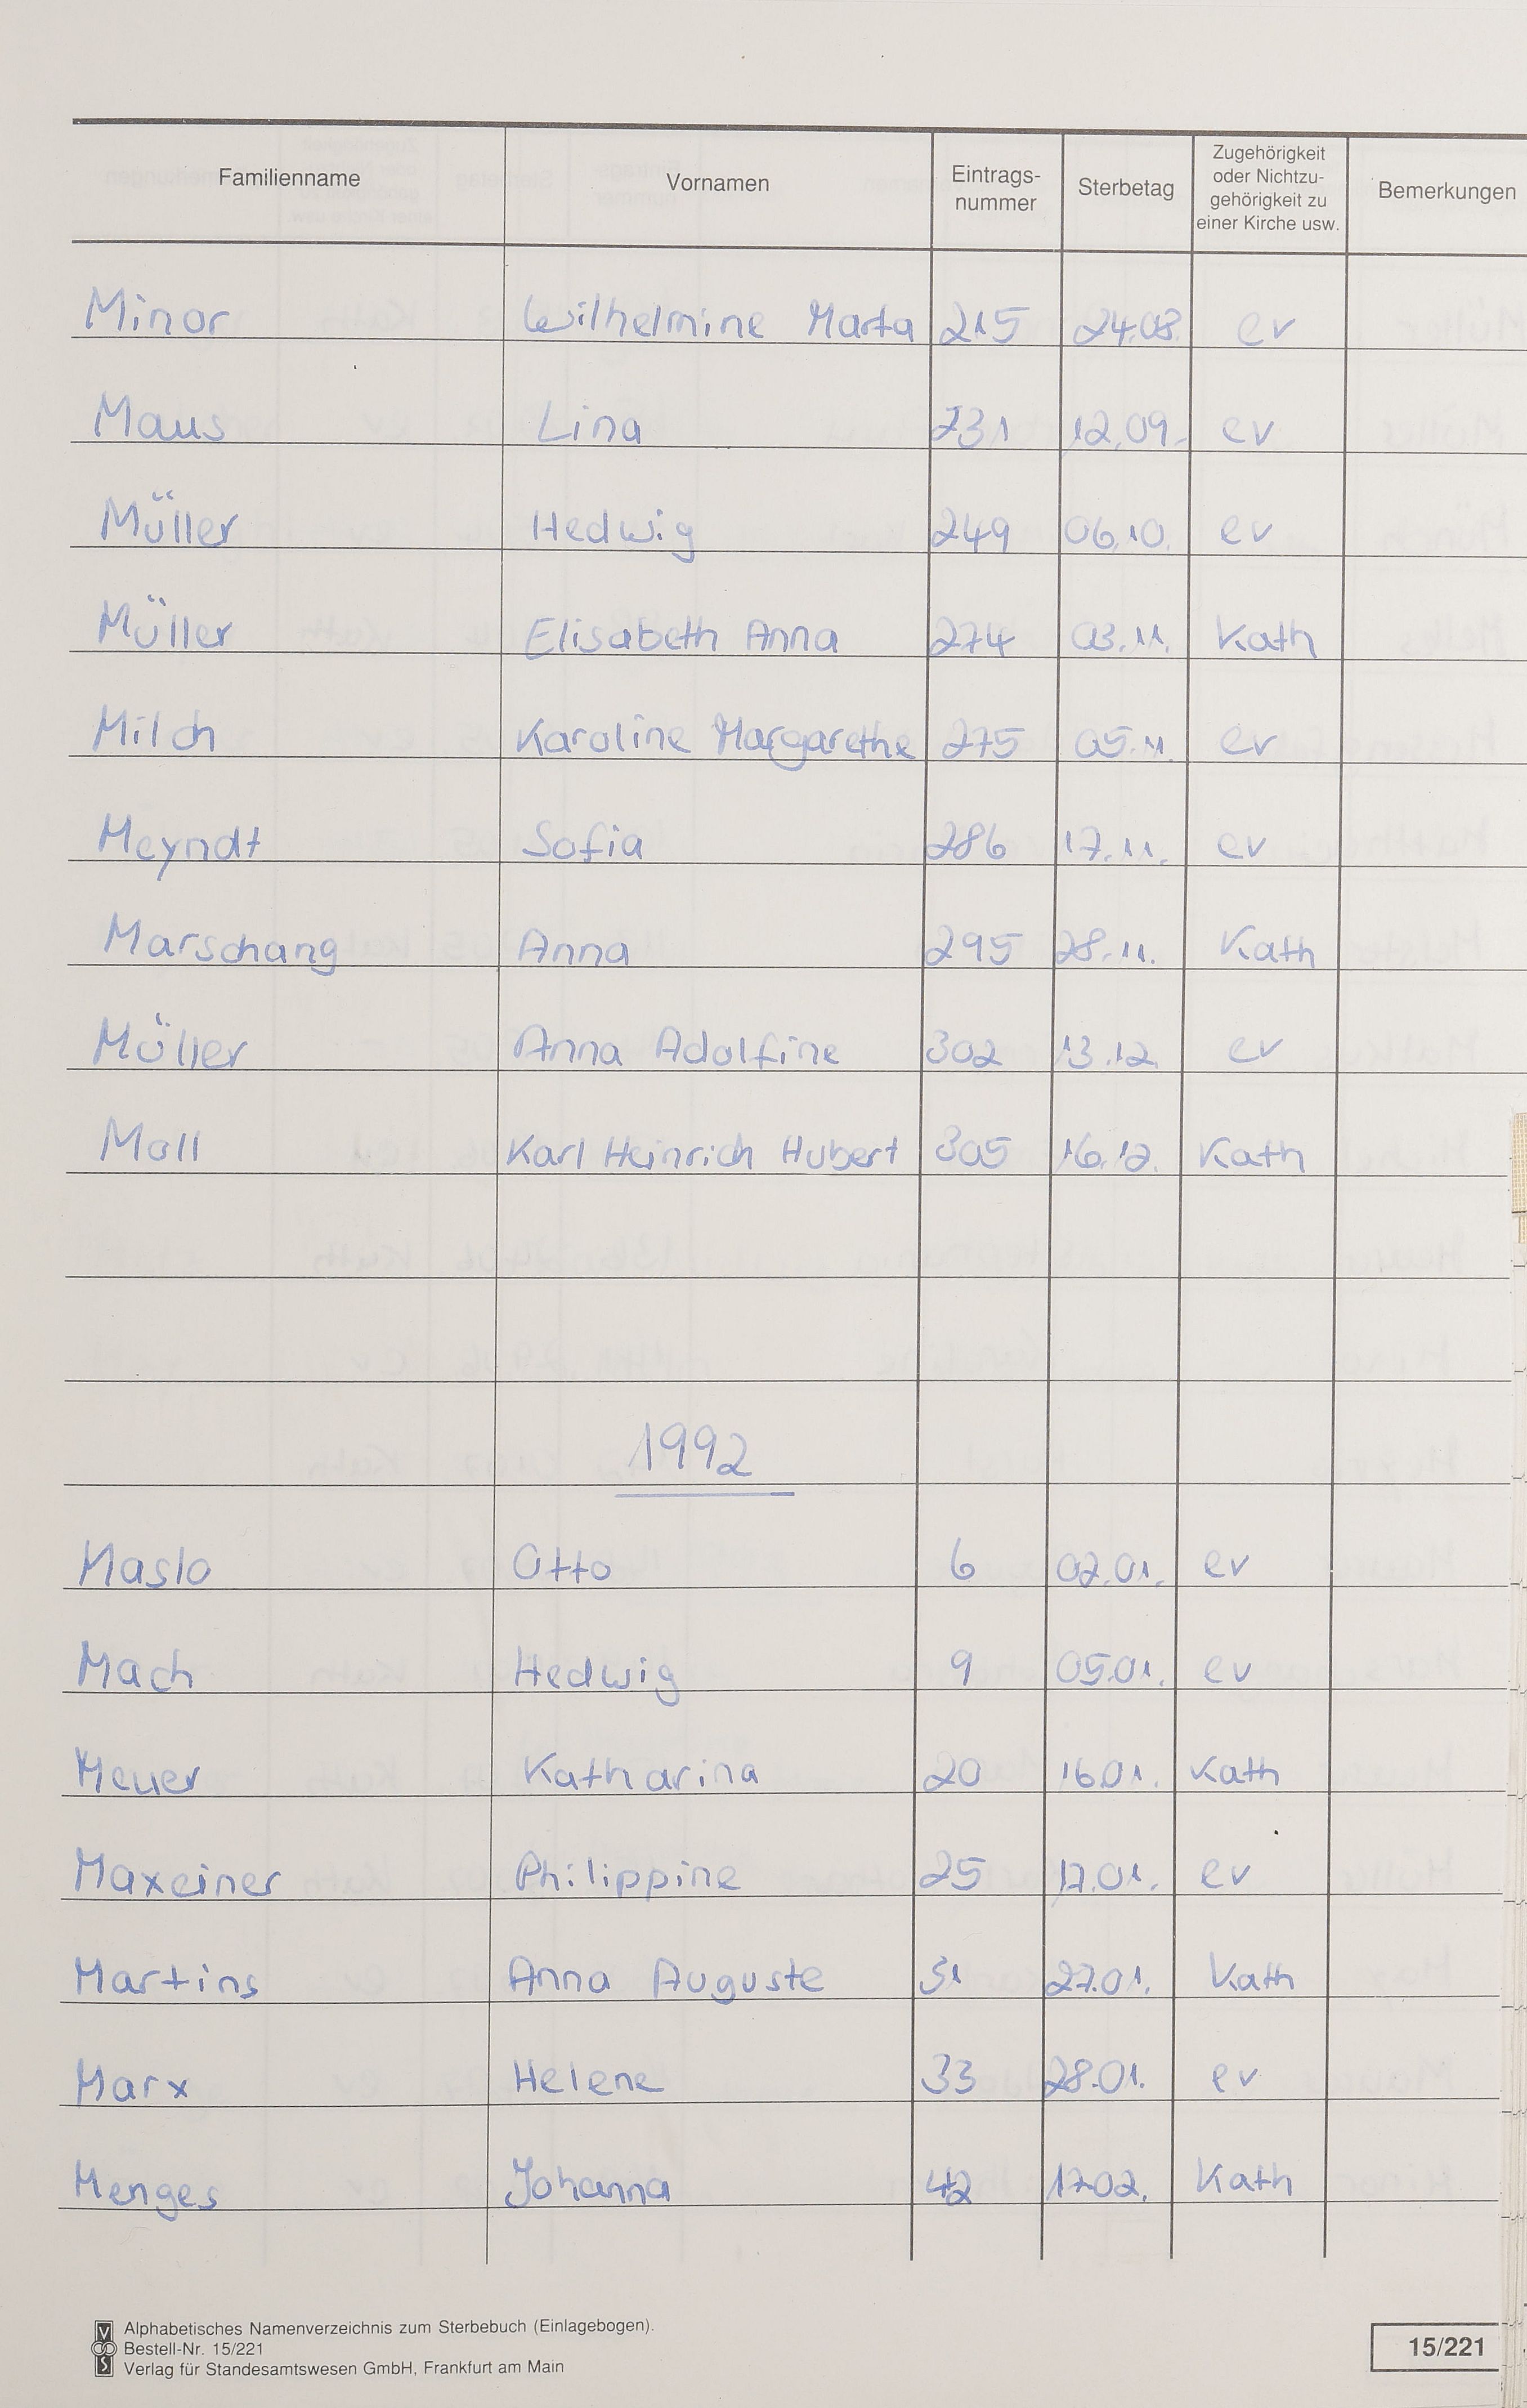 Familienname Vornamen Eintrags-nummer Sterbetag Zugehörigkeit oder Nichtzu-gehörigkeit zu einer Kirche usw. Bemerkungen
Minor Wilhelmine Marta 215 24.08. ev
Maus Lina 231 12.09. ev
Müller Hedwig 249 06.10. ev
Müller Elisabeth Anna 274 03.11. Kath
Milch Karoline Margarethe 275 05.11. ev
Meyndt Sofia 286 17.11. ev
Marschang Anna 295 28.11. Kath
Müller Anna Adolfine 302 13.12. ev
Moll Karl Heinrich Hubert 305 16.12. Kath
1992
Maslo Otto 6 02.01. ev
Mach Hedwig 9 05.01. ev
Meuer Katharina 20 16.01. Kath
Maxeiner Philippine 25 17.01. ev
Martins Anna Auguste 31 27.01. Kath
Marx Helene 33 28.01. ev
Menges Johanna 42 17.02. Kath
Alphabetisches Namenverzeichnis zum Sterbebuch (Einlagebogen).
Bestell-Nr. 15/221
Verlag für Standesamtswesen GmbH, Frankfurt am Main
15/221